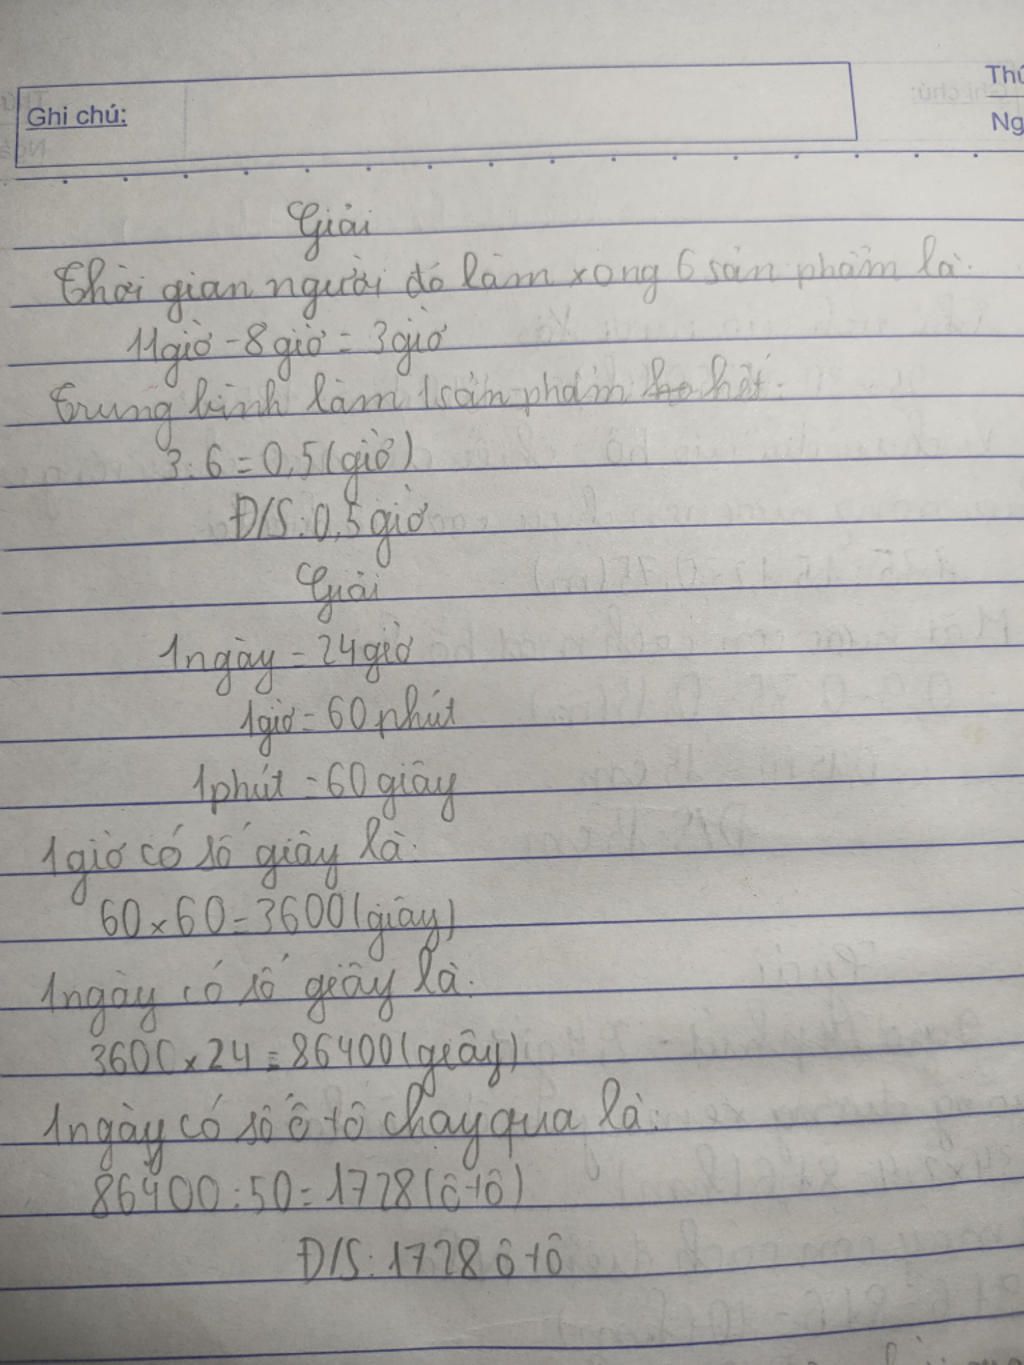 Ghi chú:
Thứ
Ng
Giải
Thời gian người đó làm xong 6 sản phẩm là:
11giờ - 8 giờ = 3 giờ
Trung bình làm 1 sản phẩm hết:
3 : 6 = 0,5 (giờ)
Đ/S: 0,5 giờ
Giải
1 ngày = 24 giờ
1 giờ = 60 phút
1 phút = 60 giây
1 giờ có số giây là:
60 x 60 = 3600 (giây)
1 ngày có số giây là:
3600 x 24 = 86400 (giây)
1 ngày có số ô tô chạy qua là:
86400 : 50 = 1728 (ô tô)
Đ/S: 1728 ô tô